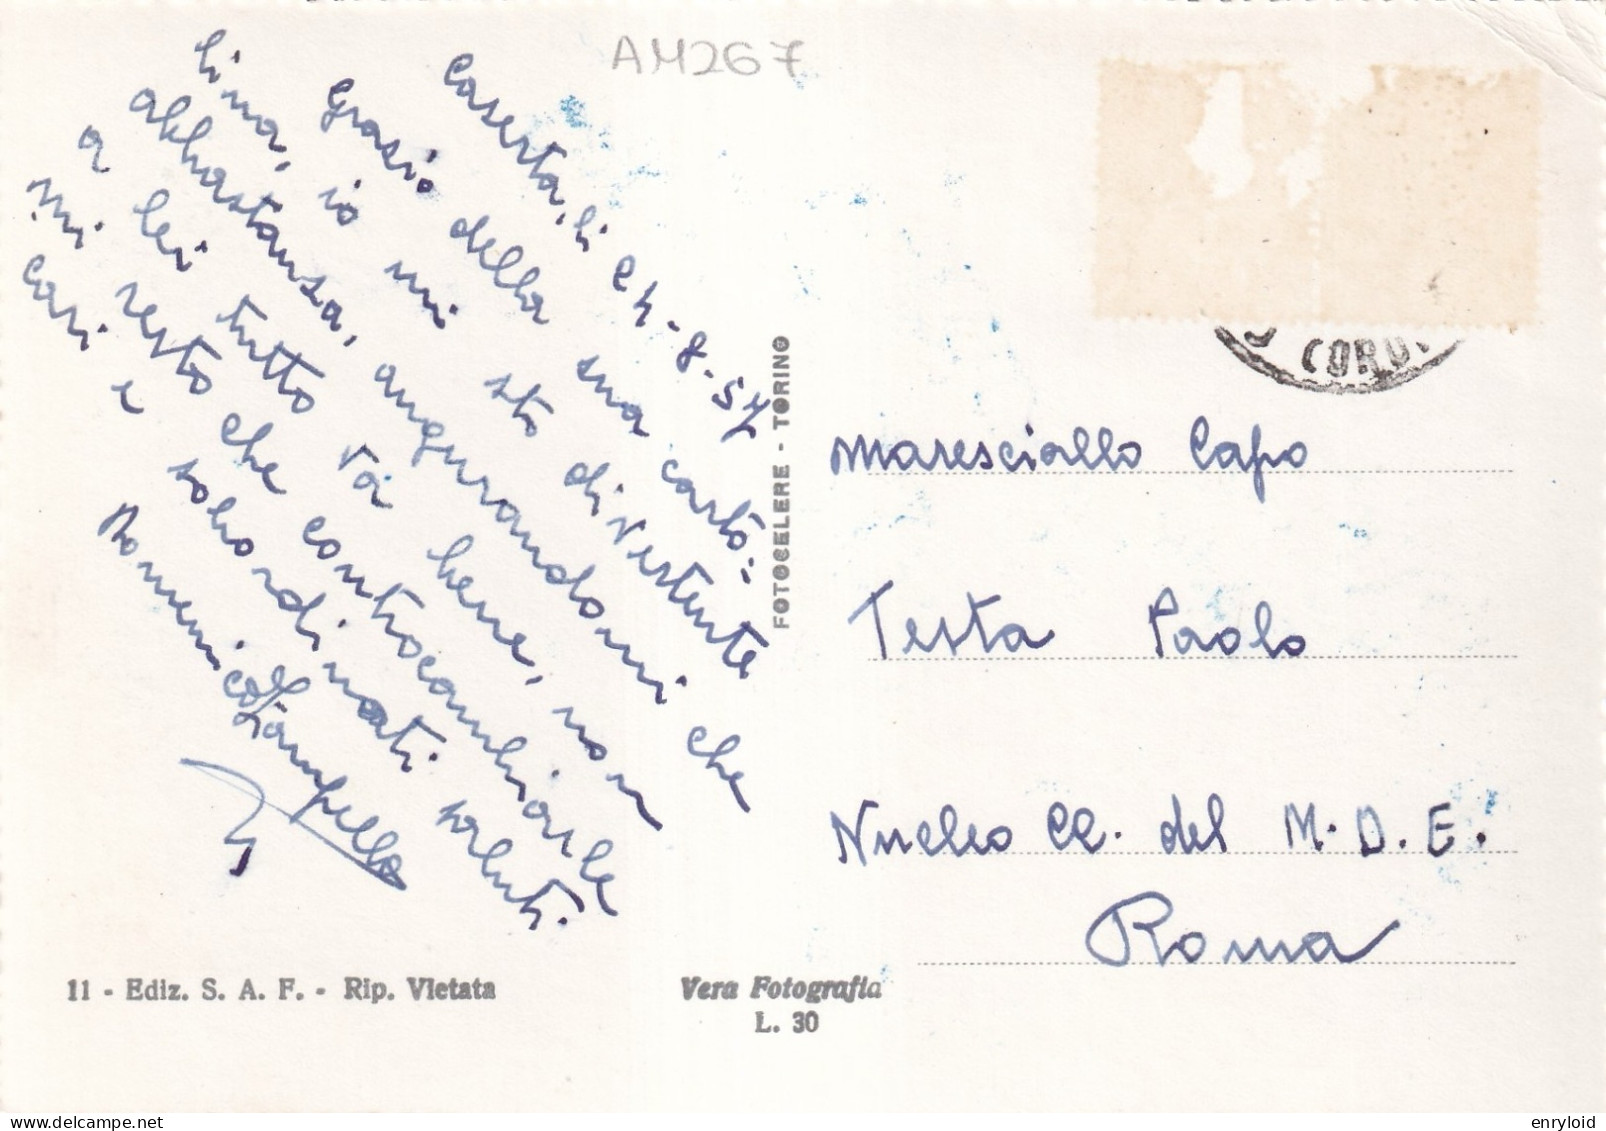 AM267
Caserta, li 24-8-57
Grazie della sua carto=
lina, io mi sto divertente
abbastanza, augurandomi che
a lei tutto va bene, non
mi resto che contrecambiarle
cari e sobordinati saluti.
Domenico Zampella
FOTOCELERE - TORINO
CORU
Maresciallo Capo
Testa Paolo
Nucleo CC. del M.D.E.
Roma
11 - Ediz. S. A. F. - Rip. Vietata
Vera Fotografia
L. 30
delcampe.net
enryloid